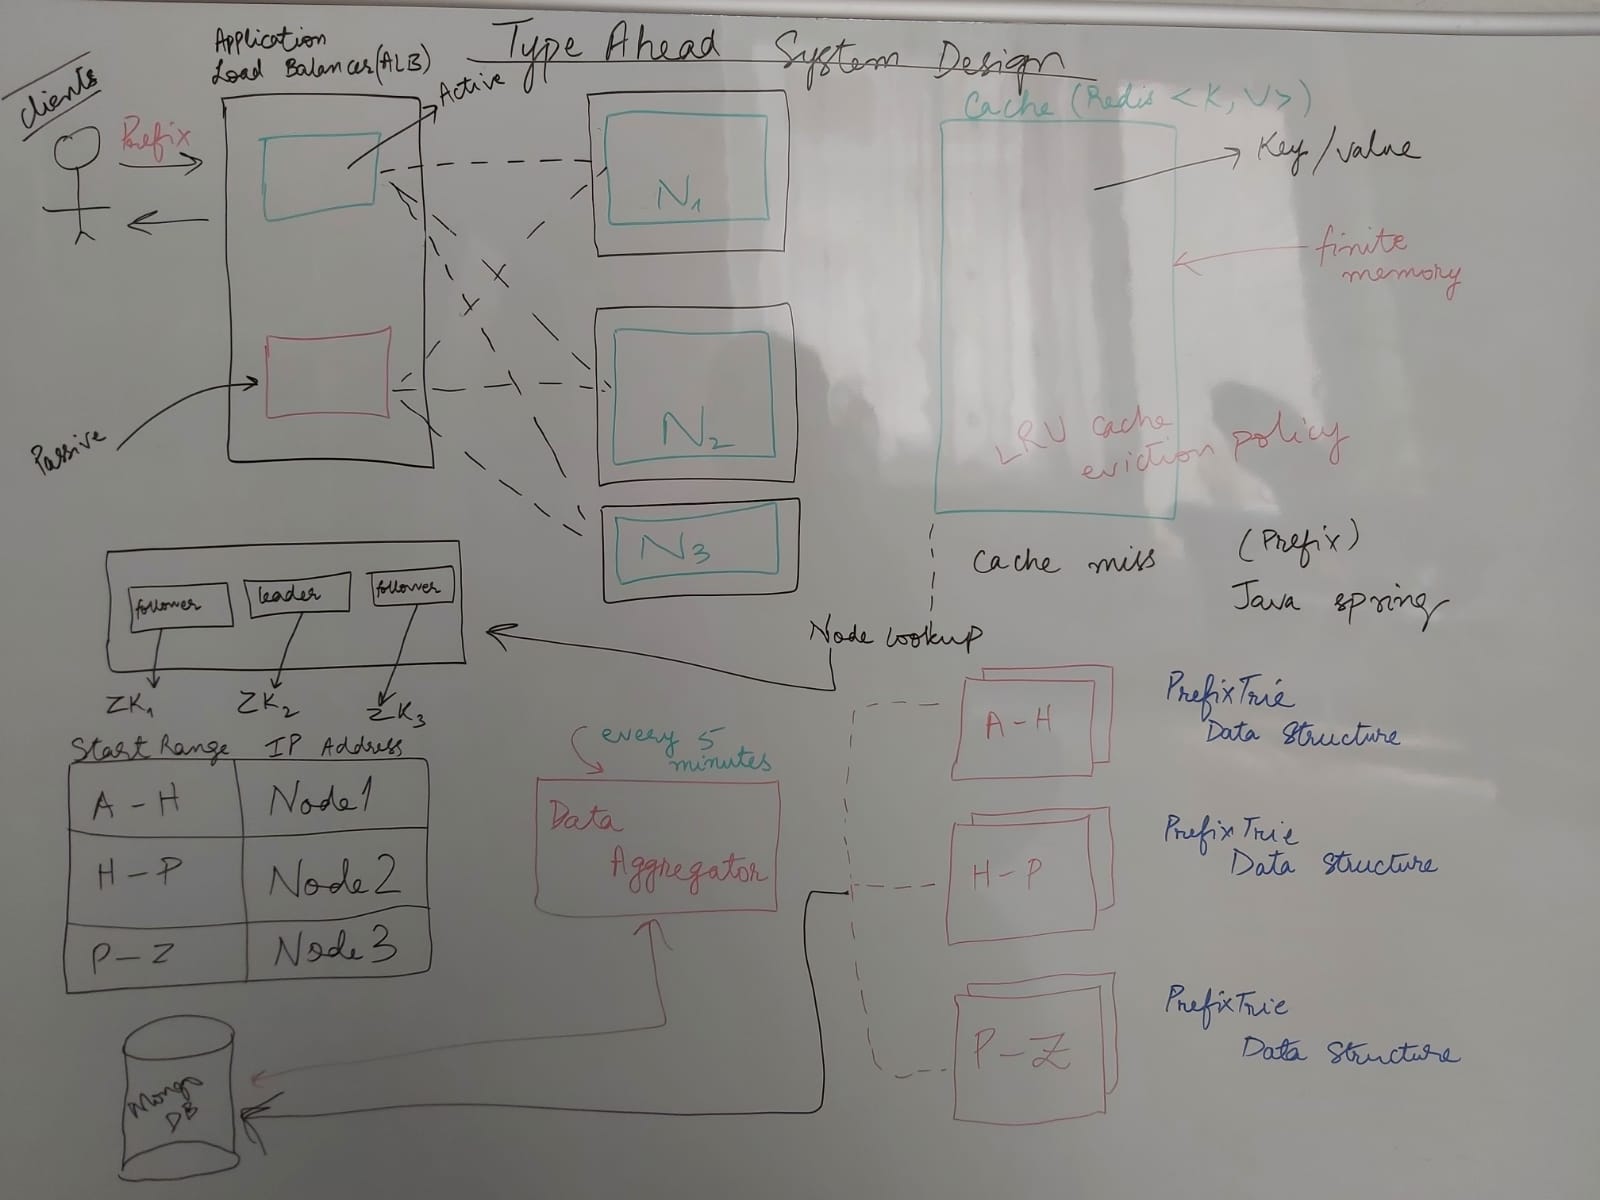 Type Ahead System Design
clients
Prefix
Application
Load Balancer(ALB)
Active
Passive
N1
N2
N3
Cache (Redis <K,V>)
Key/value
finite
memory
LRU cache
eviction policy
Cache miss
(Prefix)
Java spring
Node lookup
follower
leader
follower
ZK1
ZK2
ZK3
Start Range IP Address
A - H Node1
H - P Node2
P - Z Node3
every 5
minutes
Data
Aggregator
Mongo
DB
A - H
PrefixTrie
Data Structure
H - P
PrefixTrie
Data Structure
P - Z
PrefixTrie
Data Structure